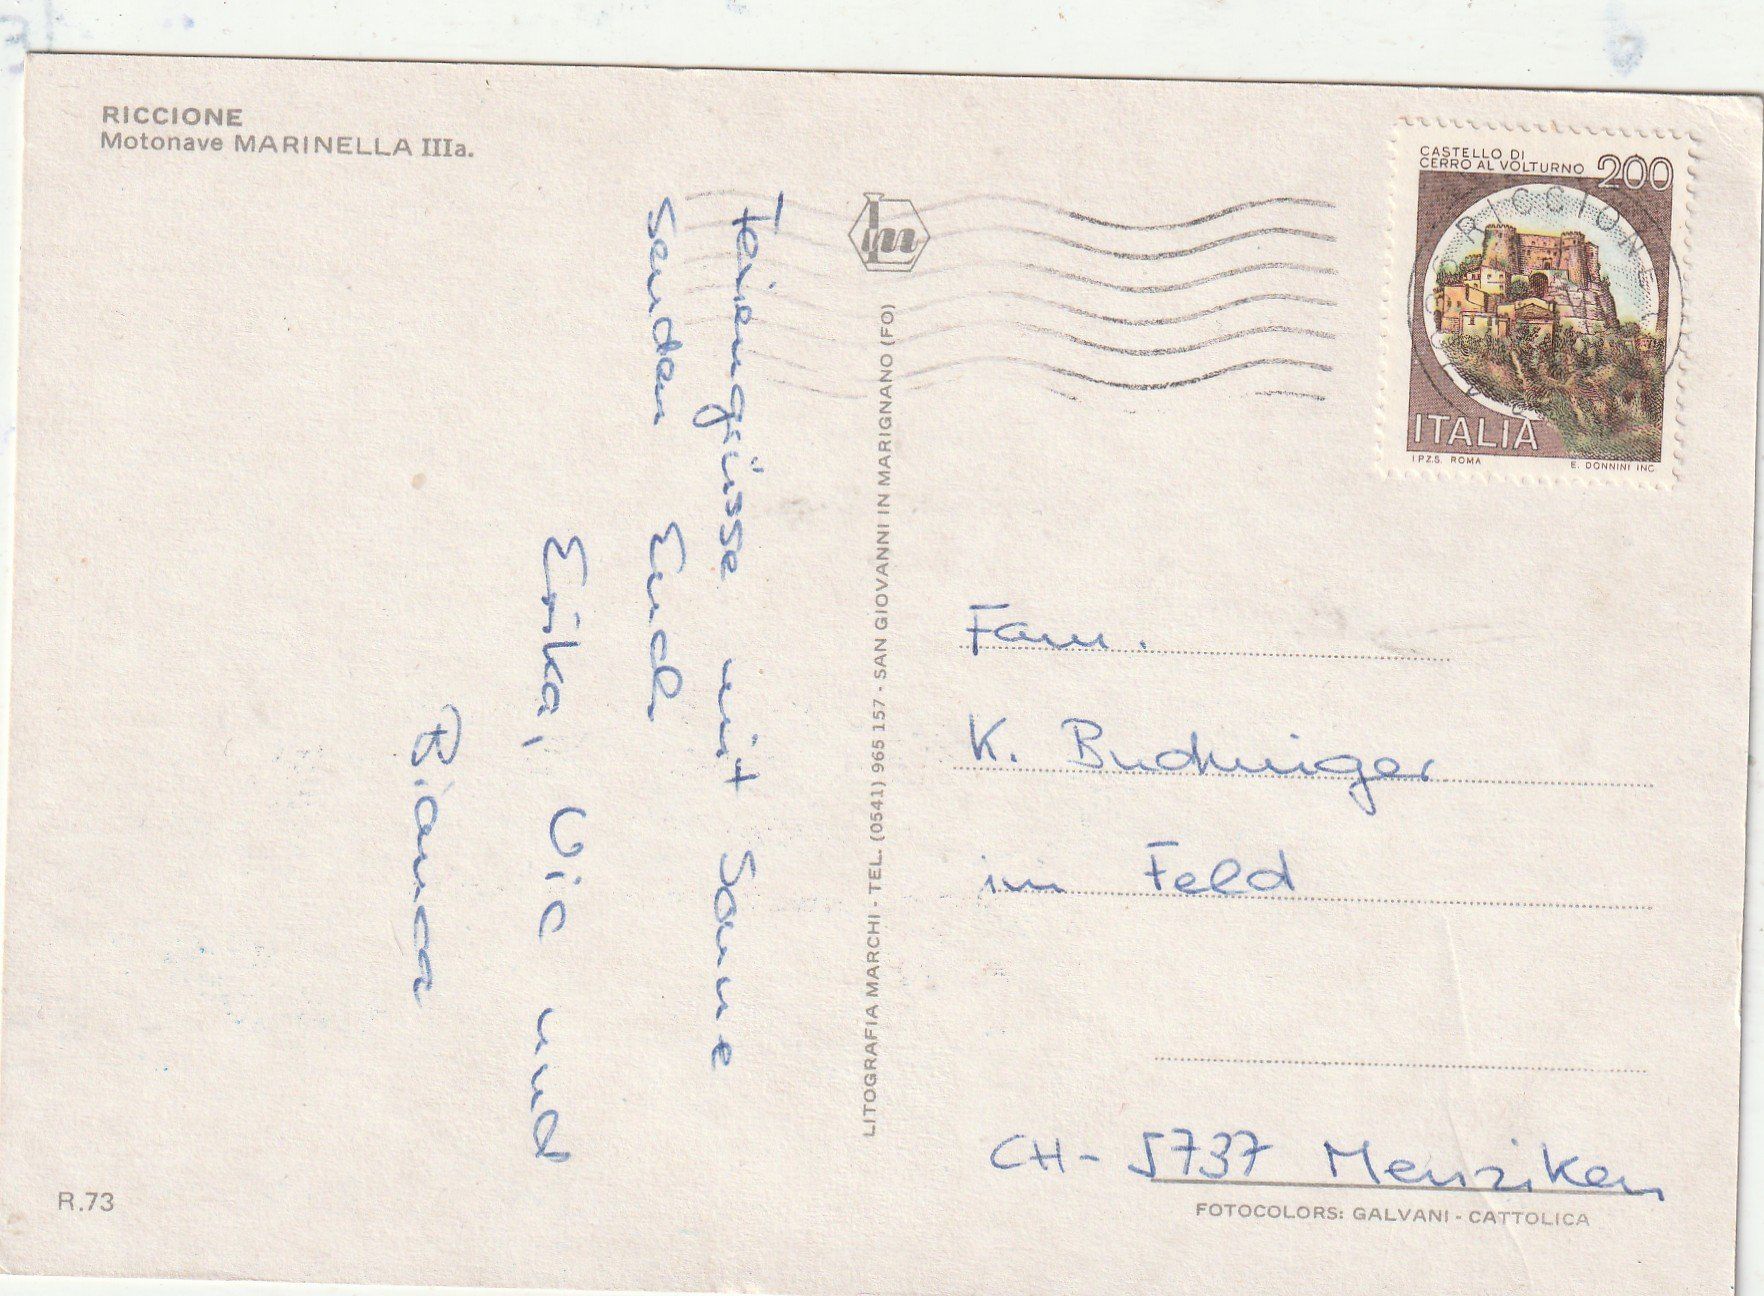 RICCIONE
Motonave MARINELLA IIIa.
Feriengrüsse mit Sonne
senden Euch
Erika, Vic und
Bianca
R.73
LITOGRAFIA MARCHI - TEL. (0541) 965 157 - SAN GIOVANNI IN MARIGNANO (FO)
lm
CASTELLO DI
CERRO AL VOLTURNO 200
RICCIONE
ITALIA
I.P.Z.S. ROMA E. DONNINI INC.
Fam.
K. Buchniger
im Feld
CH-5737 Menziken
FOTOCOLORS: GALVANI - CATTOLICA